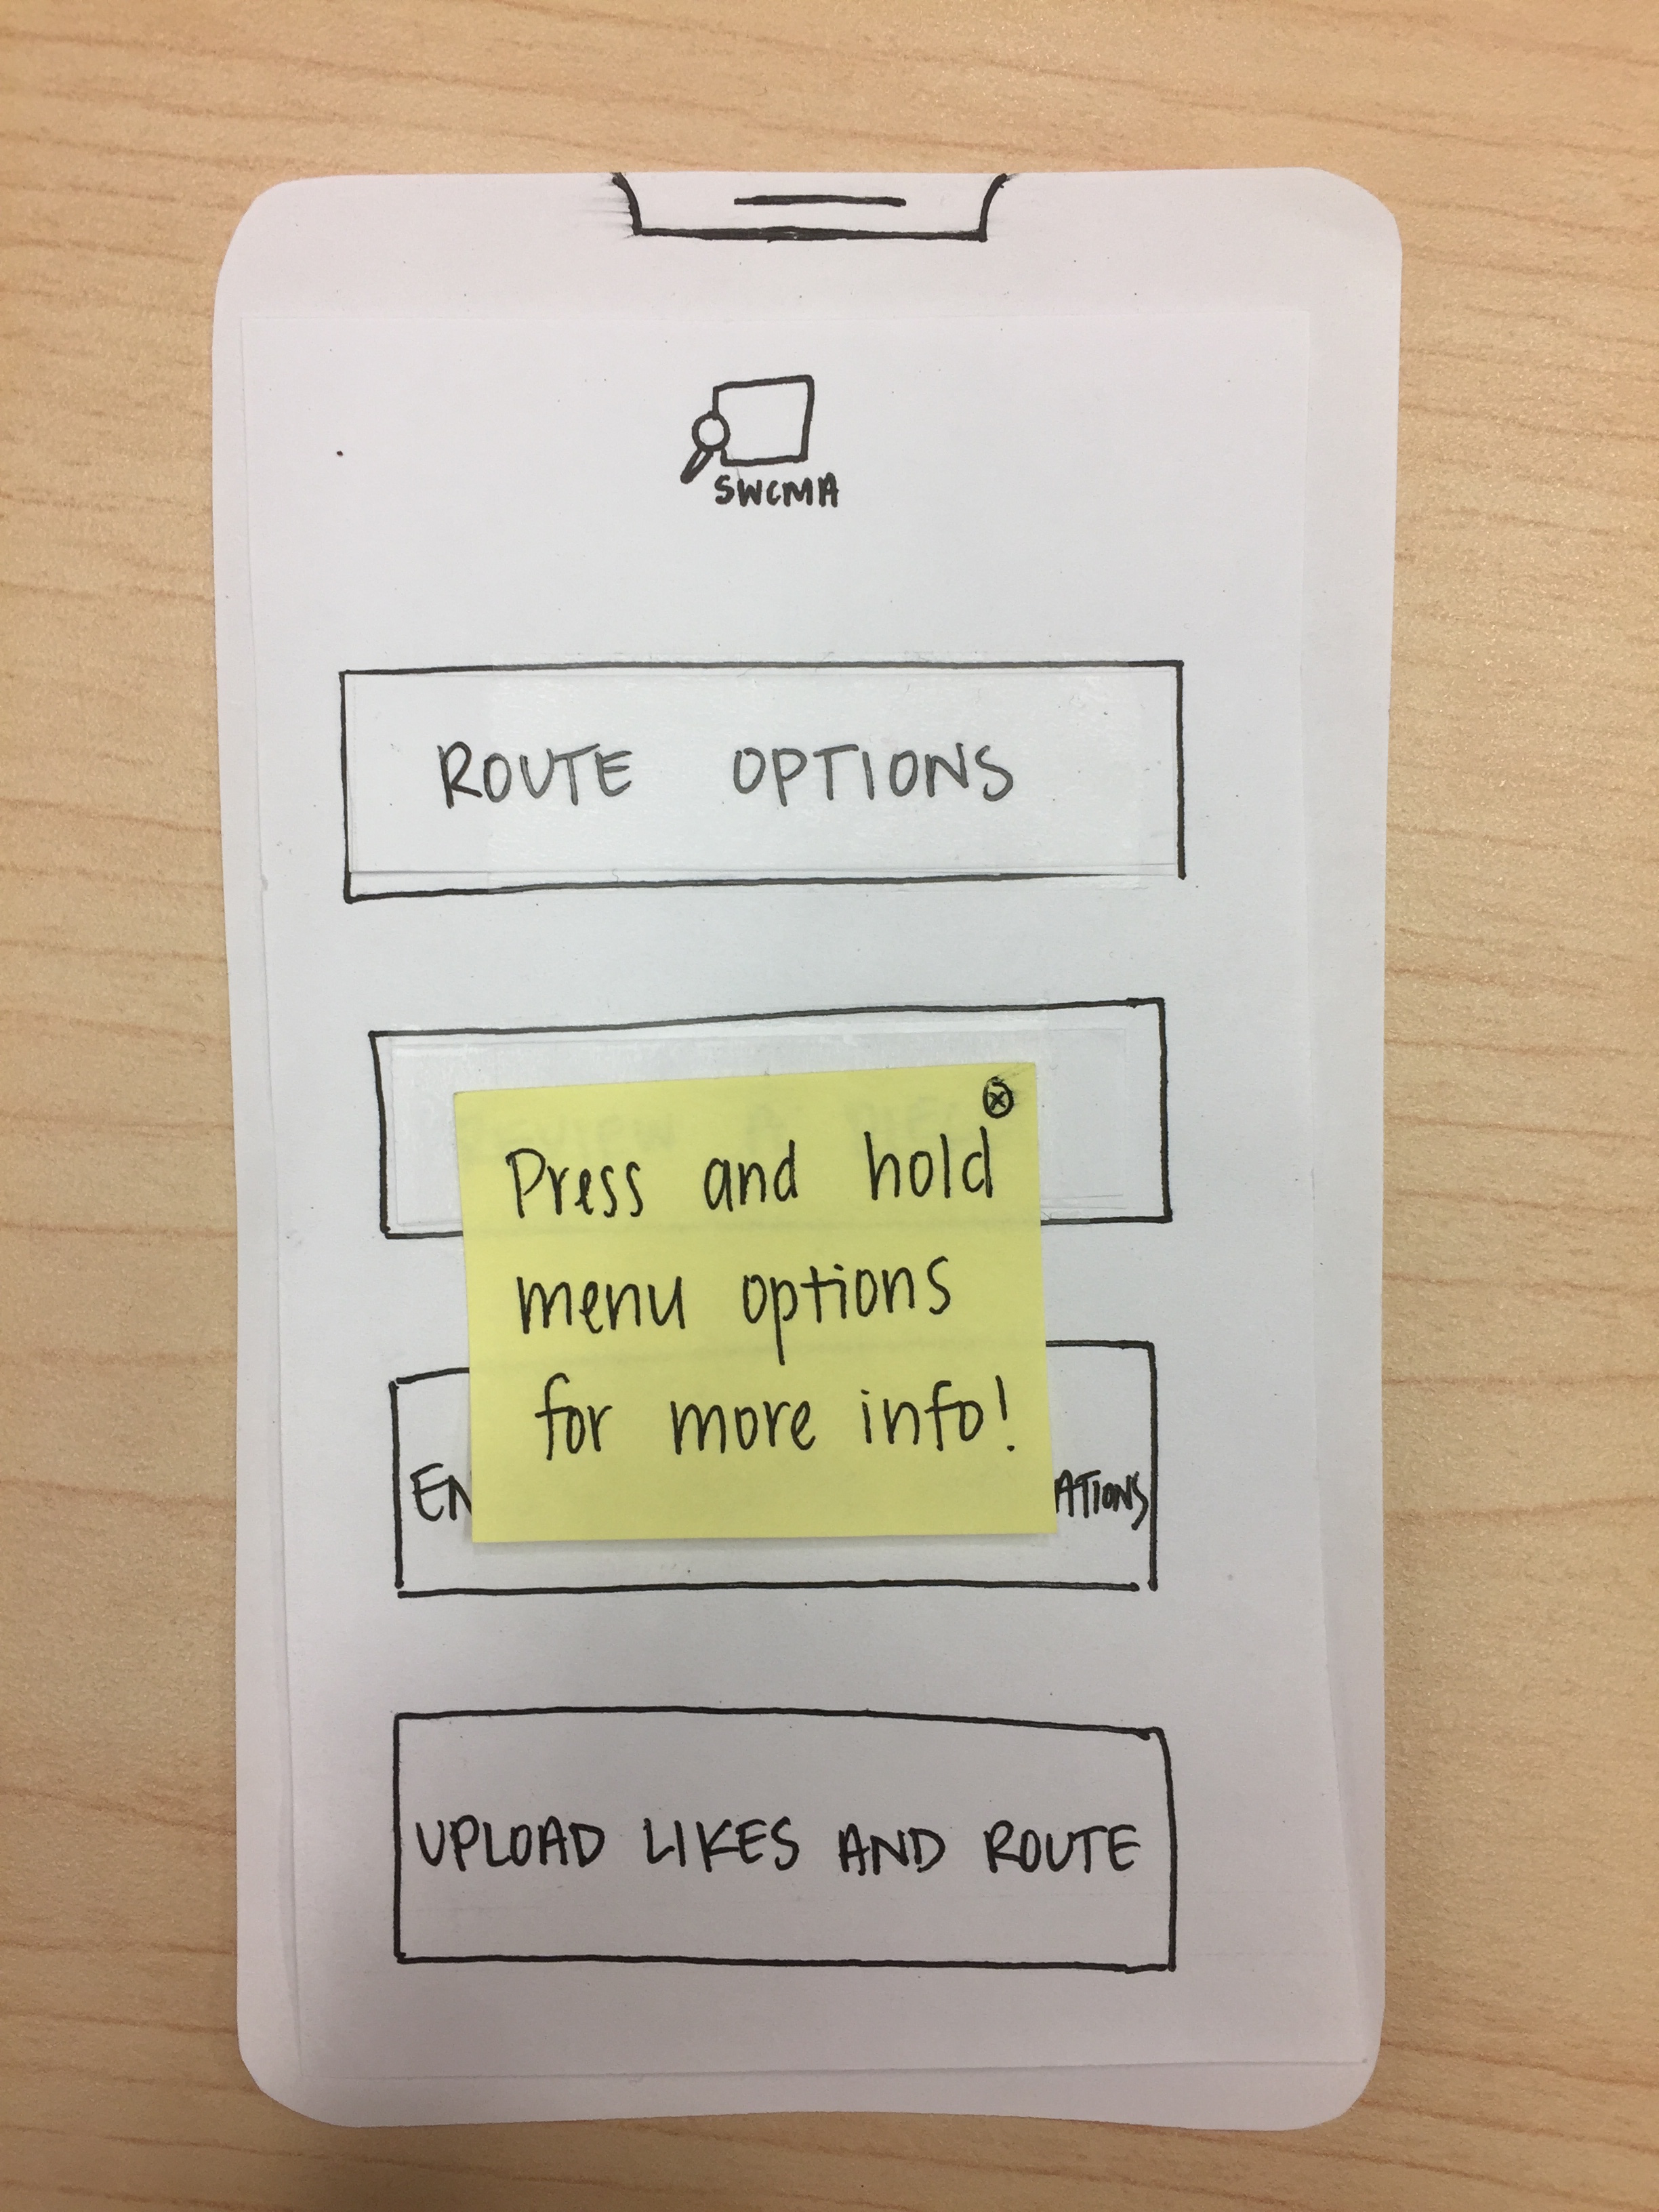 SWCMA
ROUTE OPTIONS
Press and hold
menu options
for more info!
UPLOAD LIKES AND ROUTE